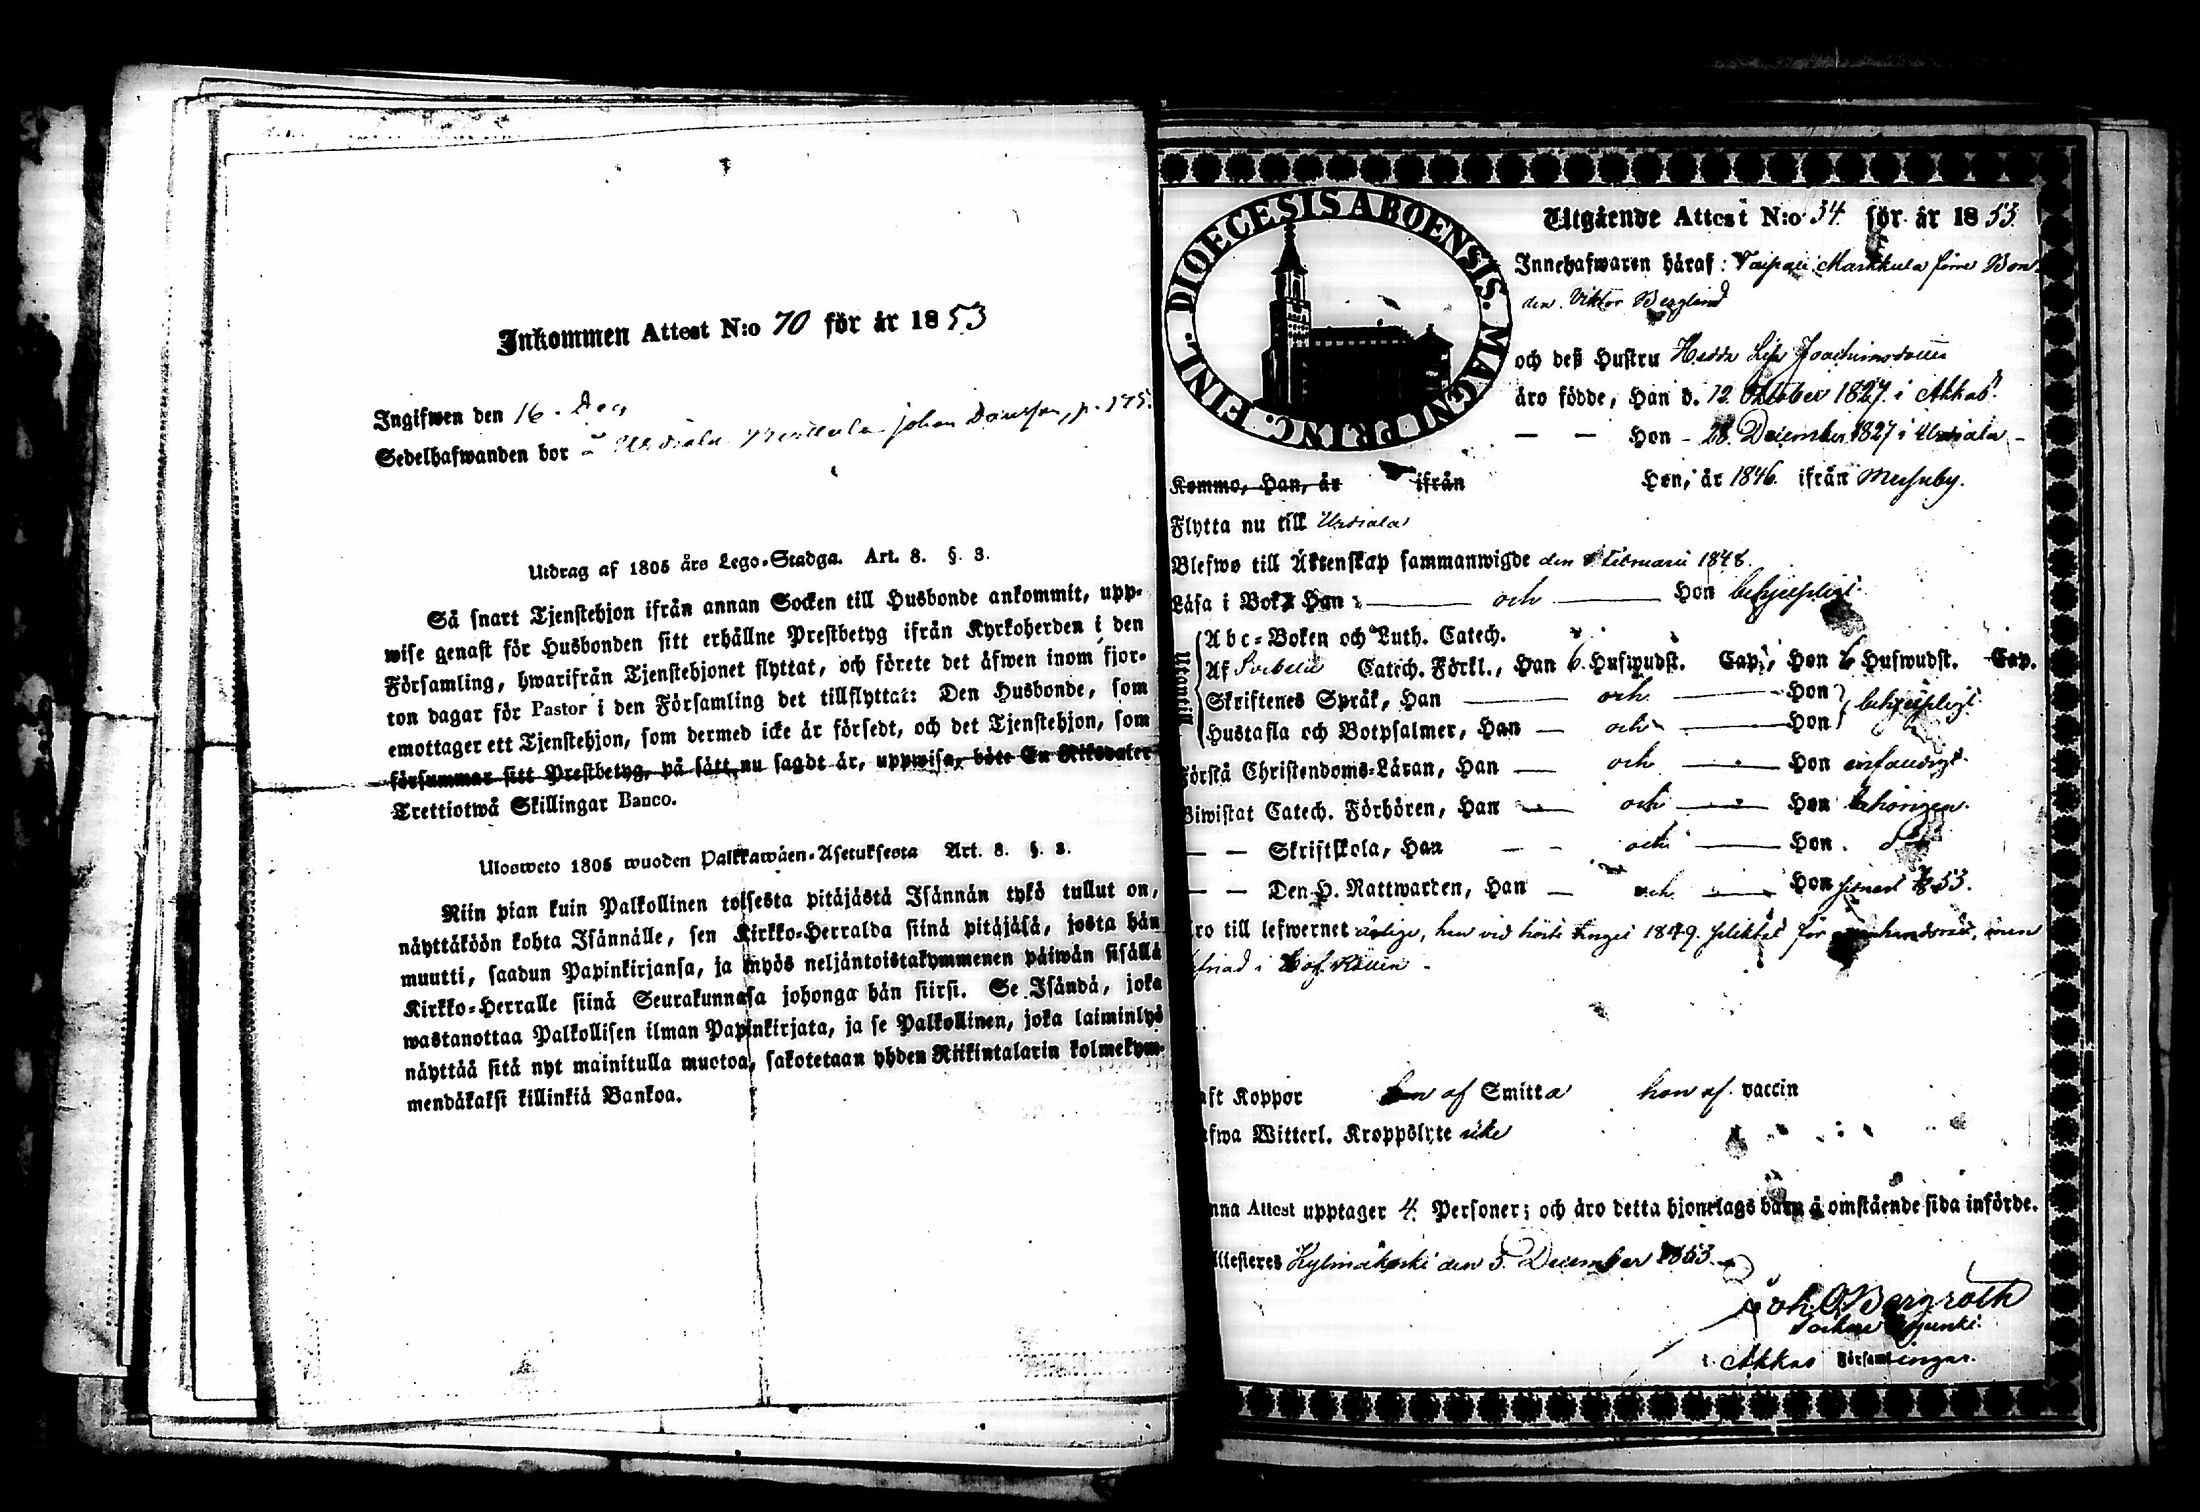 Inkommen Attest N:o 70 för år 1853
Ingifwen den 16. Dec
Sedelhafwanden bor i Urdiala Johan p. 175.
Utdrag af 1805 års Lego-Stadga. Art. 8. §. 3.
Så snart Tjenstehjon ifrån annan Socken till Husbonde ankommit, upp-
wise genast för Husbonden sitt erhållne Prestbetyg ifrån Kyrkoherden i den
Församling, hwarifrån Tjenstehjonet flyttat, och förete det äfwen inom fjor-
ton dagar för Pastor i den Församling det tillflyttat: Den Husbonde, som
emottager ett Tjenstehjon, som dermed icke är försedt, och det Tjenstehjon, som
försummar sitt Prestbetyg, på sätt nu sagdt är, uppwisa, böte En Riksdaler
Trettiotwå Skillingar Banco.
Ulosweto 1805 wuoden Palkkawäen-Asetuksesta Art. 8. §. 3.
Niin pian kuin Palkollinen toisesta pitäjästä Isännän tykö tullut on,
näyttäköön kohta Isännälle, sen Kirkko-Herralda siinä pitäjäsä, josta hän
muutti, saadun Papinkirjansa, ja myös neljäntoistakymmenen päiwän sisällä
Kirkko-Herralle siinä Seurakunnasa johonga hän siirsi. Se Isändä, joka
wastanottaa Palkollisen ilman Papinkirjata, ja se Palkollinen, joka laiminlyö
näyttää sitä nyt mainitulla muotoa, sakotetaan yhden Riikintalarin kolmekym-
mendäkaksi killinkiä Bankoa.
DIOECESIS ABOENSIS. MAGNI PRINC. FINL.
Utgående Attest N:o 34 för år 1853
Innehafwaren häraf: Taipale Markkula förre Bon-
den Viktor Berglind
och deß Hustru Hedda Lisa Joachimsdotter
äro födde, Han d. 12 Oktober 1827 i Akkas
— — Hon - 28 December 1827 i Urdiala -
Kommo, Han, år ifrån Hon, år 1846 ifrån Messuby.
Flytta nu till Urdiala
Blefwo till Äktenskap sammanwigde den Februarii 1848.
Läsa i Bok Han — och — Hon behjelpligt.
Utantill
Abc-Boken och Luth. Catech.
Af Svebelii Catech. Förkl., Han 6 Hufwudst. Cap., Hon 6 Hufwudst. Cap.
Skriftenes Språk, Han — och — Hon
Hustafla och Botpsalmer, Han — och — Hon behjelpligt.
Förstå Christendoms-Läran, Han — och — Hon enfaldigt.
Biwistat Catech. Förhören, Han — och — Hon behörigen.
— — Skriftskola, Han — och — Hon.
— — Den H. Nattwarden, Han — och — Hon senast 53.
ro till lefwernet ärlige, han vid höste tinget 1849 för men
i Hof Rätten -
aft Koppor han af Smitta hon af vaccin
efwa Witterl. Kroppslyte icke
nna Attest upptager 4. Personer; och äro detta hjonelags barn å omstående sida införde.
ttesteres Kylmäkoski den 5. December 1853.
Joh. O. Bergroth
i Akkas Församlingar.